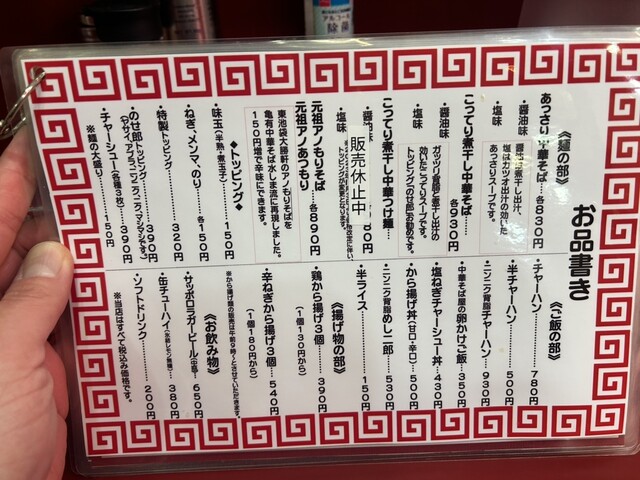 お品書き
《麺の部》
あっさり中華そば…各830円
・醤油味
・塩味
醤油は煮干し出汁、
塩はカツオ出汁の効いた
あっさりスープです。
こってり煮干し中華そば…
各930円
・醤油味
・塩味
ガッツリ背脂と煮干し出汁の
効いたこってりスープです。
トッピングのせ郎お勧めです。
こってり煮干し中華つけ麺…
・醤油味
・塩味
販売休止中
元祖アノもりそば
元祖アノあつもり
各890円
東池袋大勝軒のアノもりそばを
亀有中華そば水しま流に再現しました。
150円増で辛味にできます。
◆トッピング◆
・味玉(半熟・煮玉子)…150円
・ねぎ、メンマ、のり…各150円
・特製トッピング…320円
・のせ郎トッピング…390円
(ヤサイ、アブラ、ニンニク、マシマシ、キざ。)
・チャーシュー(各種3枚)…390円
※麺の大盛り…150円
《ご飯の部》
・チャーハン…780円
・半チャーハン…500円
・ニンニク背脂チャーハン…930円
・中華そば屋の卵かけご飯…350円
・塩ねぎチャーシュー丼…430円
・から揚げ丼(甘口・辛口)…500円
・ニンニク背脂めし二郎…530円
・半ライス…150円
《揚げ物の部》
・鶏から揚げ3個…390円
(1個130円から)
・辛ねぎから揚げ3個…540円
(1個180円から)
※から揚げ類の販売は午前9時〜とさせていただきます。
《お飲み物》
・サッポロラガービール(中瓶)…650円
・缶チューハイ…380円
・ソフトドリンク…200円
※当店はすべて税込み価格です。
アルコール
除菌